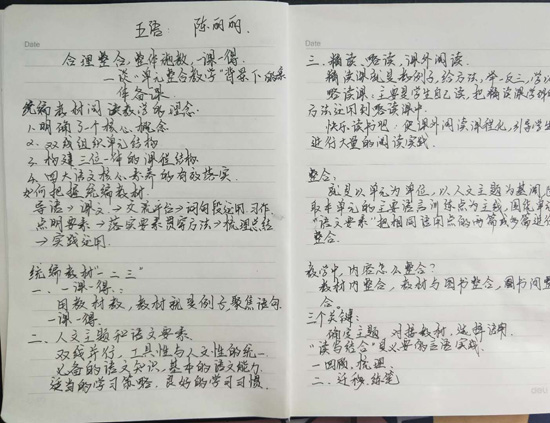 Date
五语: 陈丽丽.
合理整合,整体施教,一课一得.
—谈《单元整合教学》背景下的集
体备课.
统编教材阅读教学的理念.
1.明确了个核心概念
2.双线组织单元结构
3.构建三位一体的课程结构
4.四大语文核心素养的有效落实
如何把握统编教材.
导语→课文→交流平台→词句段运用.习作.
点明要素→落实要素贯穿方法→梳理总结
→实践运用.
统编教材"一二三"
一、一课一得:
用教材教,教材就是例子,聚焦语句.
一课一得.
二、人文主题和语文要素.
双线并行,工具性与人文性的统一.
必备的语文知识,基本的语文能力.
适当的学习策略,良好的学习习惯.
Date
三、精读、略读,课外阅读.
精读课就是教例子,给方法,举一反三,学以
略读课:主要是学生自己读,把精读课学到的
方法运用到略读课中.
快乐读书吧:使课外阅读课程化,引导学生
进行大量的阅读实践.
整合:
就是以单元为单位,以人文主题为基调,
取本单元的主要语言训练点为主线,围绕单
"语文要素"把相同运用点的两篇或多篇进行
整合.
教学中,内容怎么整合?
教材内整合,教材与图书整合,图书间整
合.
三个关键:
确定主题,对接教材,选择运用.
"读写结合"是必要的言语实践.
一.回顾,梳理.
二、迁移,练笔